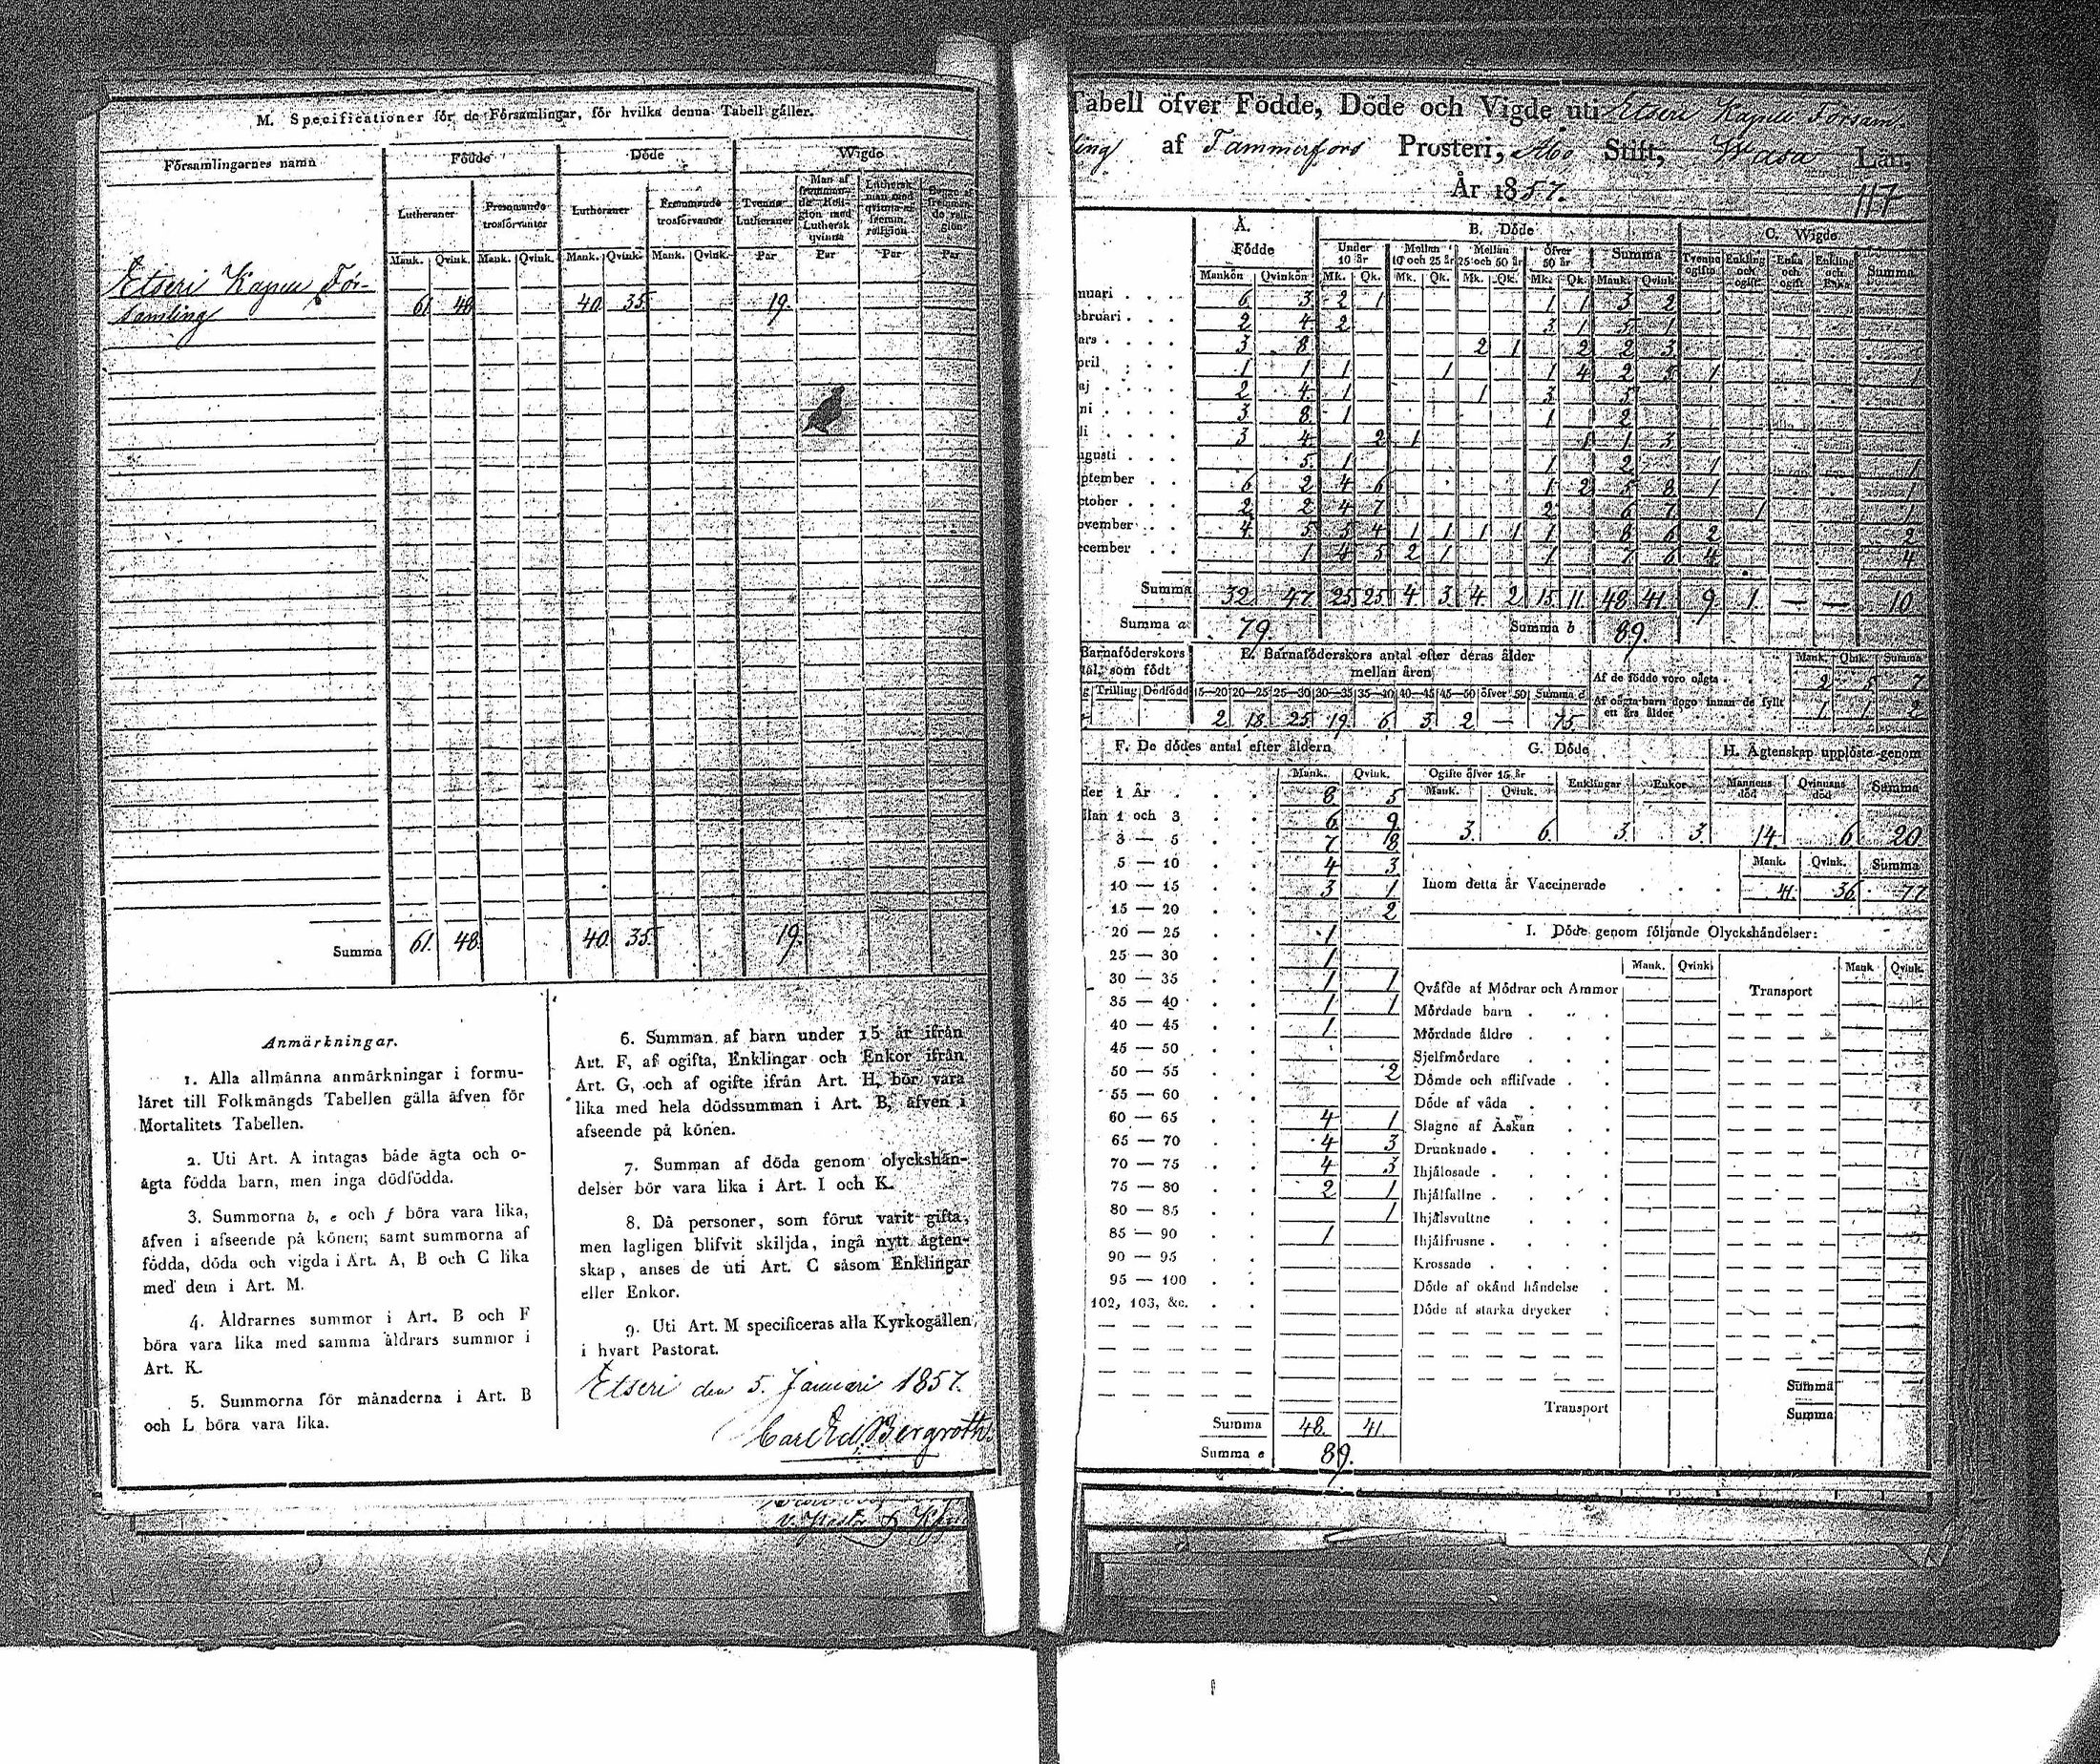 M. Specificationer för de Församlingar, för hvilka denna Tabell gäller.
Församlingarnes namn
Födde
Döde
Wigde
Lutheraner
Främmande trosförvanter
Lutheraner
Främmande trosförvanter
Tvenne Lutheraner
Man af främmande Religion med Luthersk qvinna
Luthersk man med qvinna af främm. religion
Mank. Qvink. Mank. Qvink. Mank. Qvink. Mank. Qvink. Par Par Par Par
Etseri Kapell För-
samling 61 48 40 35 19.
Summa 61. 48. 40 35 19.
Anmärkningar.
1. Alla allmänna anmärkningar i formu-
läret till Folkmängds Tabellen gälla äfven för
Mortalitets Tabellen.
2. Uti Art. A intagas både ägta och o-
ägta födda barn, men inga dödfödda.
3. Summorna b, e och f böra vara lika,
äfven i afseende på könen; samt summorna af
födda, döda och vigda i Art. A, B och C lika
med dem i Art. M.
4. Åldrarnes summor i Art. B och F
böra vara lika med samma åldrars summor i
Art. K.
5. Summorna för månaderna i Art. B
och L böra vara lika.
6. Summan af barn under 15 år ifrån
Art. F, af ogifta, Enklingar och Enkor ifrån
Art. G, och af ogifte ifrån Art. H, bör vara
lika med hela dödssumman i Art. B, äfven i
afseende på könen.
7. Summan af döda genom olyckshän-
delser bör vara lika i Art. I och K.
8. Då personer, som förut varit gifta,
men lagligen blifvit skiljda, ingå nytt ägten-
skap, anses de uti Art. C såsom Enklingar
eller Enkor.
9. Uti Art. M specificeras alla Kyrkogällen
i hvart Pastorat.
Etseri den 5. Januari 1857.
Carl Ed. Bergroth.
Tabell öfver Födde, Döde och Vigde uti Etseri Kapell Försam-
ling af Tammerfors Prosteri, Åbo Stift, Wasa Län,
År 1857.
117
A. Födde
B. Döde
C. Wigde
Under 10 år
Mellan 10 och 25 år
Mellan 25 och 50 år
Öfver 50 år
Summa
Tvenne ogifte
Enkling och ogift
Enka och ogift
Enkling och Enka
Summa
Mankön Qvinkön Mk. Qk. Mk. Qk. Mk. Qk. Mk. Qk. Mank. Qvink.
nuari 6 3 2 1 1 1 3 2
ebruari 2 4 2 3 1 5 1
ars 3 8 2 1 2 2 3
pril 1 1 1 1 1 4 2 5 1 1
aj 2 4 1 1 3 5
ni 3 8 1 1 2
li 3 4 2 1 1 1 3
ugusti 5 1 1 2 1 1
ptember 6 2 4 6 1 2 5 8 1 1
ctober 2 2 4 7 2 6 7 1 1
ovember 4 5 5 4 1 1 1 1 1 8 6 2 2
ecember 1 4 5 2 1 1 7 6 4 4
Summa 32 47 25 25 4 3 4 2 15 11 48 41 9 1. — — 10
Summa a 79. Summa b 89.
Barnaföderskors
tal, som födt
E. Barnaföderskors antal efter deras ålder
mellan åren
Trilling Dödfödd 15—20 20—25 25—30 30—35 35—40 40—45 45—50 öfver 50 Summa e
2 18 25 19 6 3 2 — 75.
Mank. Qvink. Summa
Af de födde voro oägta 2 5 7
Af oägta barn dogo innan de fyllt
ett års ålder 1 1 2
F. De dödes antal efter åldern
Mank. Qvink.
der 1 År 8 5
llan 1 och 3 6 9
3 — 5 7 8
5 — 10 4 3
10 — 15 3 1
15 — 20 2
20 — 25 1
25 — 30 1
30 — 35 1 1
35 — 40 1 1
40 — 45 1
45 — 50
50 — 55 2
55 — 60
60 — 65 4 1
65 — 70 4 3
70 — 75 4 3
75 — 80 2 1
80 — 85 1
85 — 90 1
90 — 95
95 — 100
102, 103, &c.
Summa 48. 41
Summa e 89.
G. Döde
Ogifte öfver 15 år
Mank. Qvink. Enklingar Enkor
3. 6. 3. 3.
H. Ägtenskap upplöste genom
Mannens död Qvinnans död Summa
14 6 20
Mank. Qvink. Summa
Inom detta år Vaccinerade 41. 36. 77
I. Döde genom följande Olyckshändelser:
Mank. Qvink. Mank Qvink.
Qväfde af Mödrar och Ammor
Mördade barn
Mördade äldre
Sjelfmördare
Dömde och aflifvade
Döde af våda
Slagne af Åskan
Drunknade
Ihjälosade
Ihjälfallne
Ihjälsvultne
Ihjälfrusne
Krossade
Döde af okänd händelse
Döde af starka drycker
Transport
Transport
Summa
Summa